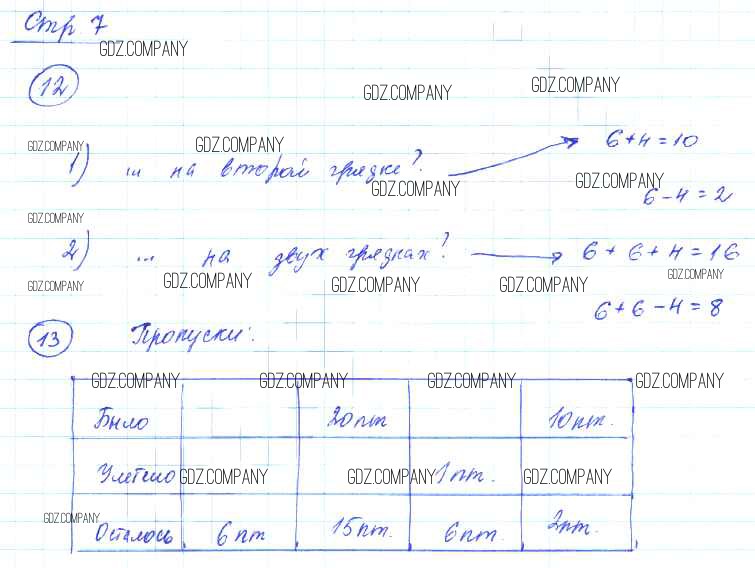 Стр 7
GDZ.COMPANY
12
GDZ.COMPANY GDZ.COMPANY
GDZ.COMPANY GDZ.COMPANY
1) ... на второй грядке? 6+4=10
GDZ.COMPANY GDZ.COMPANY
6-4=2
GDZ.COMPANY
2) ... на двух грядках? 6+6+4=16
GDZ.COMPANY GDZ.COMPANY GDZ.COMPANY GDZ.COMPANY GDZ.COMPANY
6+6-4=8
13 Пропуски:
GDZ.COMPANY GDZ.COMPANY GDZ.COMPANY GDZ.COMPANY
Было 20пт 10пт.
Улетело 1пт.
GDZ.COMPANY GDZ.COMPANY GDZ.COMPANY
GDZ.COMPANY
Осталось 6пт 15пт. 6пт. 2пт.